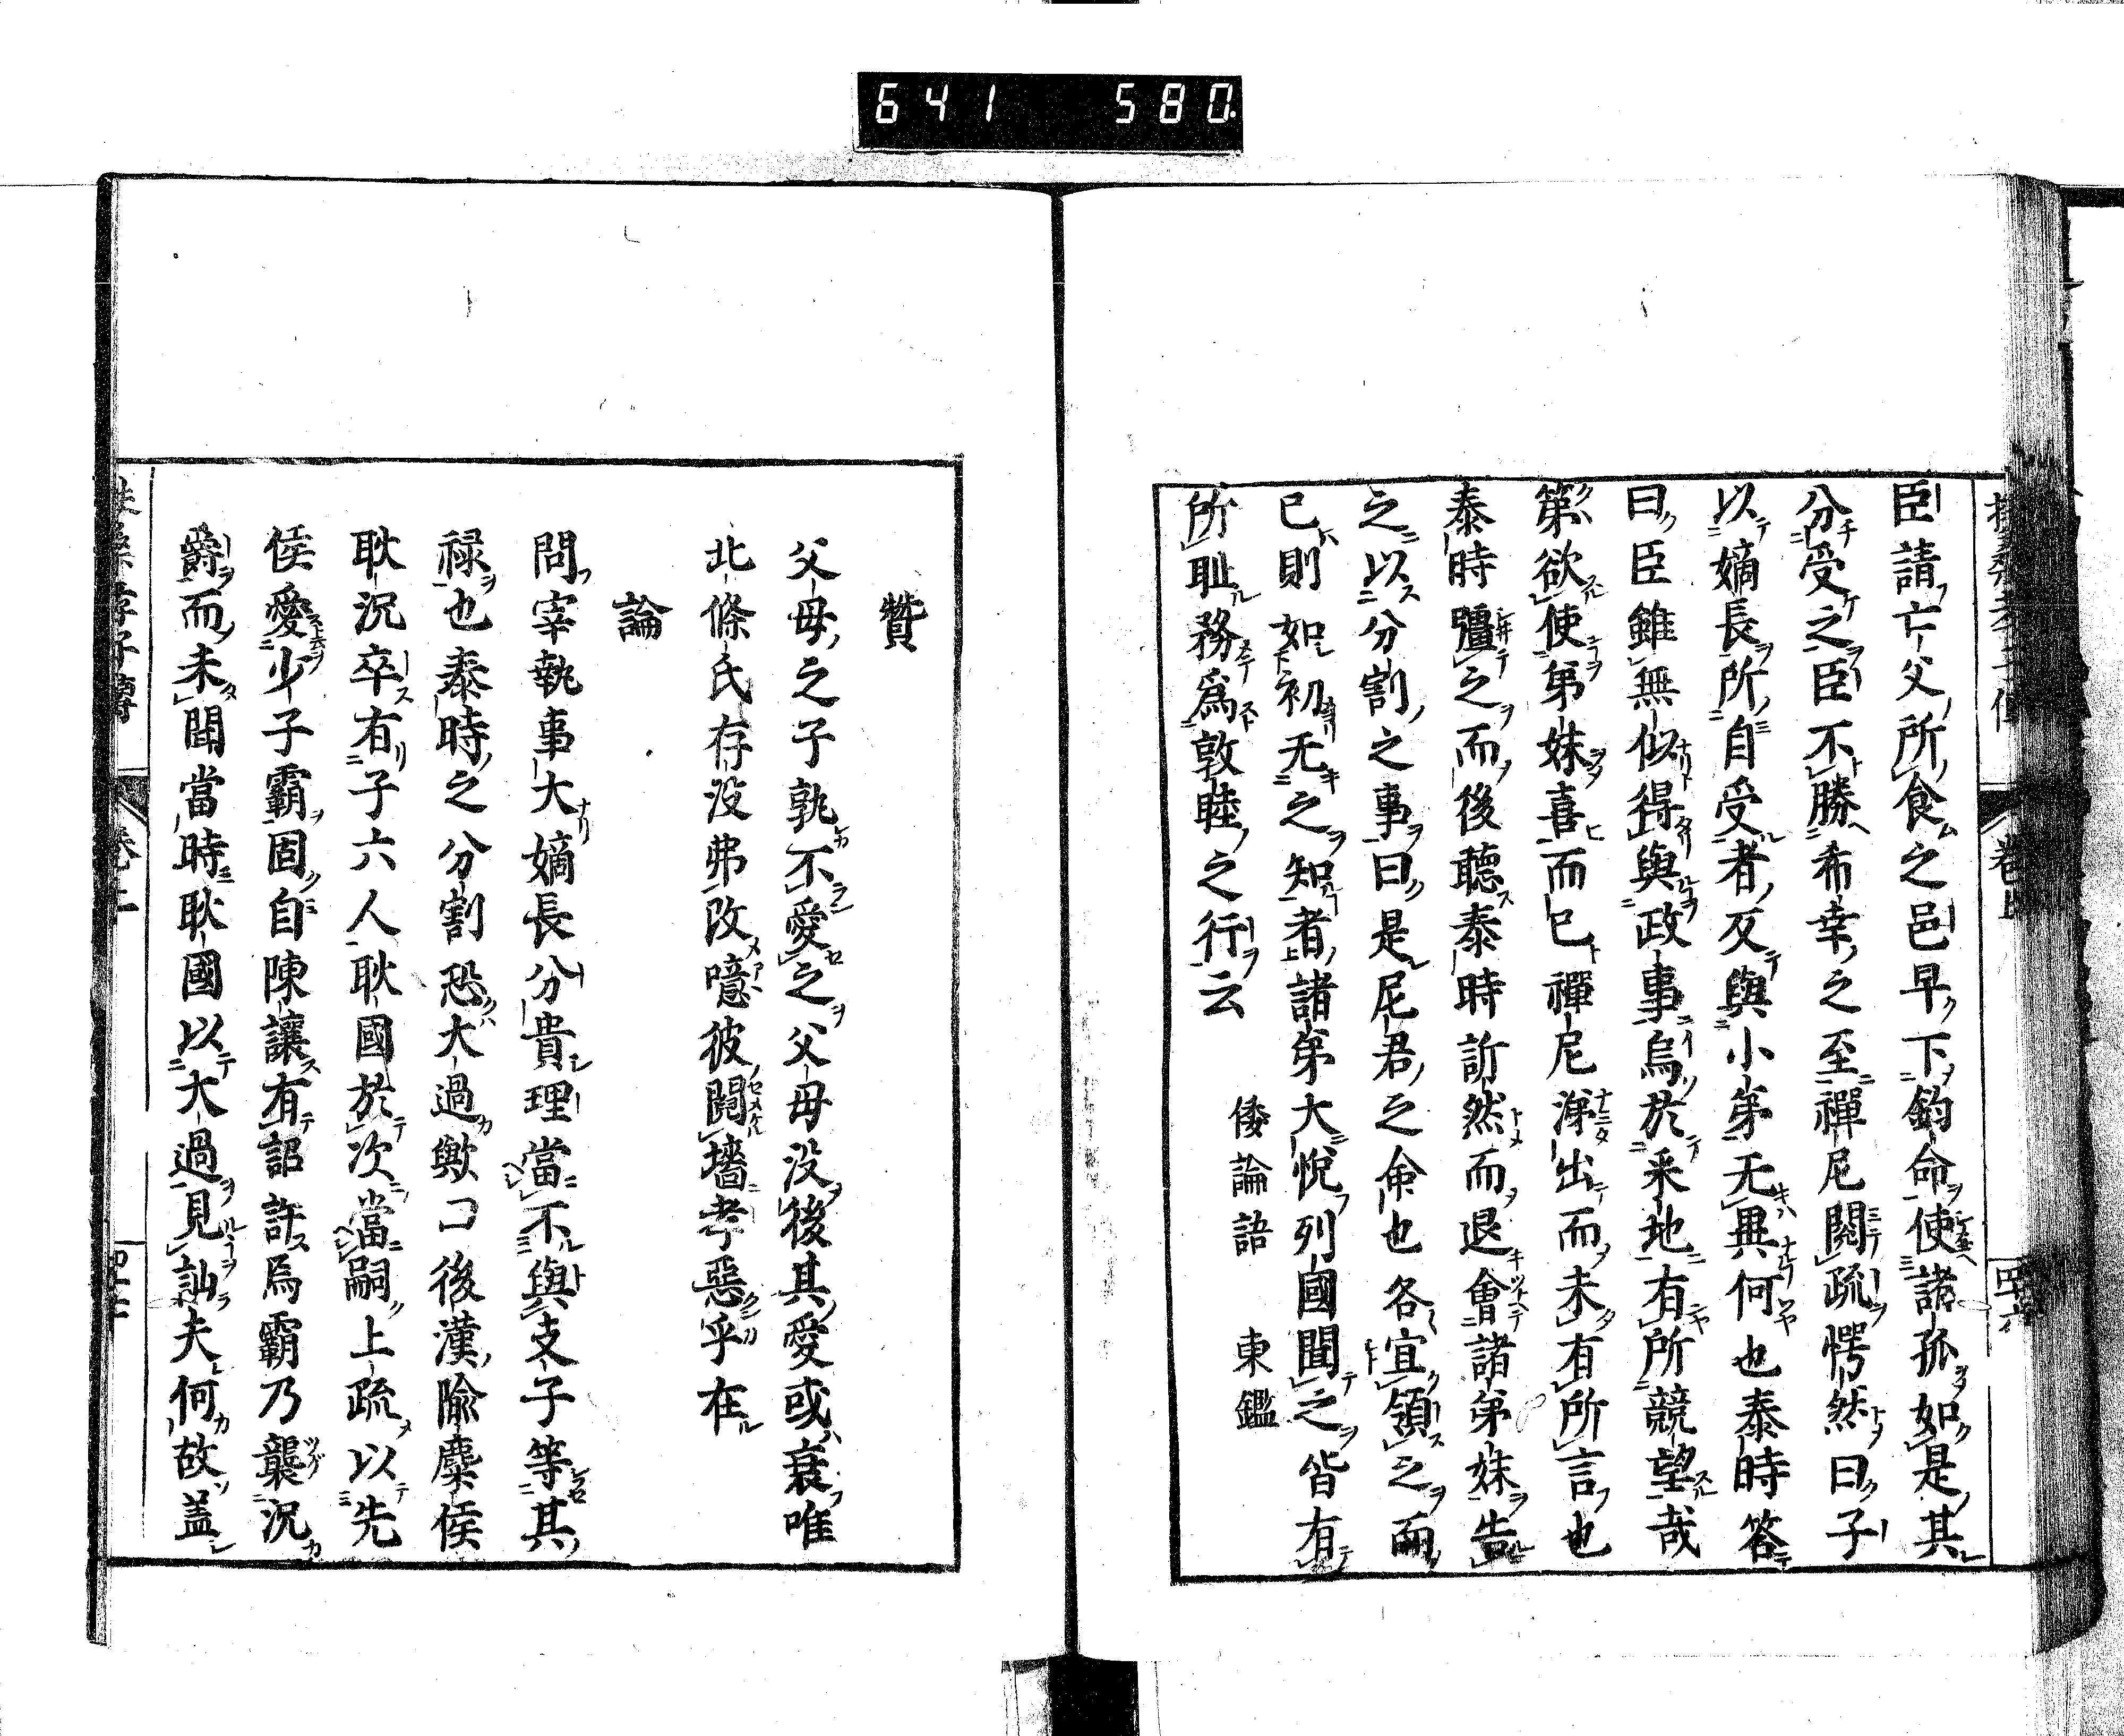 641 580.
臣請亡父所食之邑早下鈞命使諸孤如是其
分受之臣不勝希幸之至禪尼閱疏愕然曰子
以嫡長所自受者反與小弟无異何也泰時答
曰臣雖無似得與政事烏於釆地有所競望哉
第欲使弟妹喜而已禪尼涕出而未有所言也
泰時彊之而後聽泰時訢然而退會諸弟妹告
之以分割之事曰是尼君之命也各宜領之而
已則如初无之知者諸弟大悅列國聞之皆有
所耻務爲敦睦之行云 倭論語 東鑑
贊
父母之子孰不愛之父母没後其愛或衰唯
北條氏存没弗改噫彼鬩墻孝惡乎在
論
問宰執事大嫡長分貴理當不與支子等其
禄也泰時之分割恐大過歟コ後漢隃麋侯
耿況卒有子六人耿國於次當嗣上疏以先
侯愛少子霸固自陳讓有詔許焉霸乃襲況
爵而未聞當時耿國以大過見訕夫何故盖